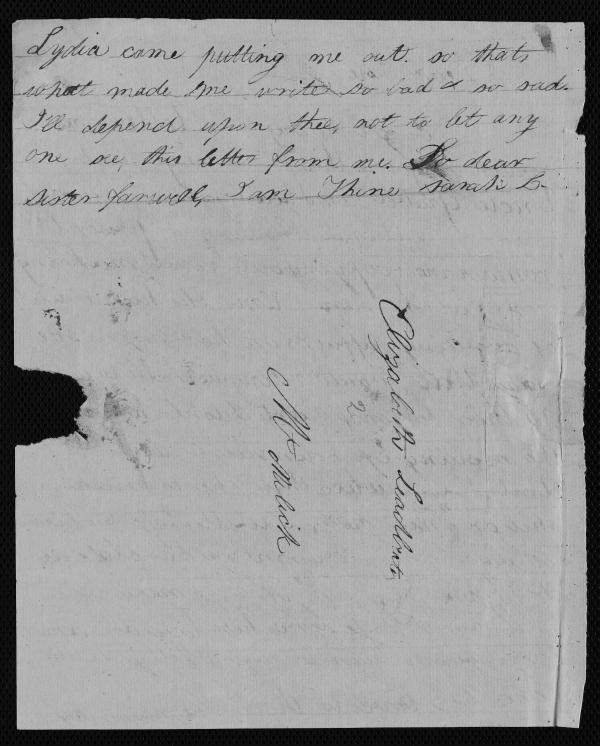 Lydia came putting me out. so thats
what made me write so bad & so sad.
I'll depend upon thee, not to let any
one see, this letter from me. So dear
sister farwell, I am Thine Sarah L.
Elizabeth Leadbeater
2